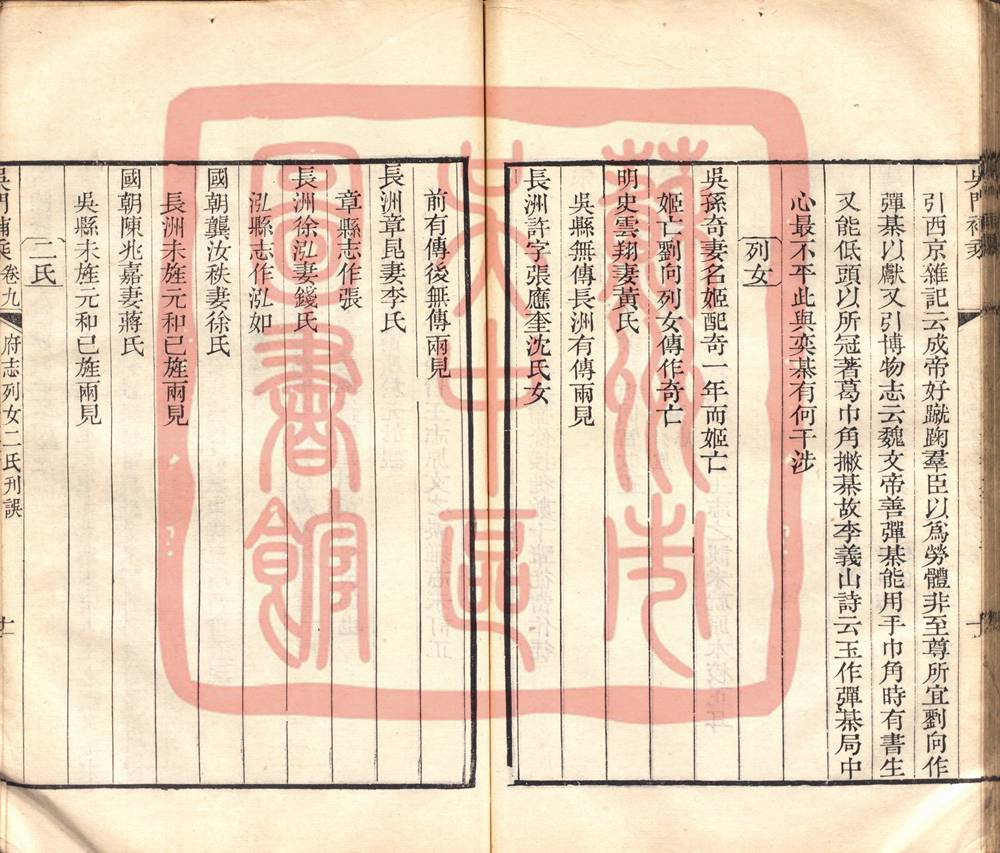 吳門補乘
引西京雜記云成帝好蹴踘羣臣以爲勞體非至尊所宜劉向作
彈棊以獻又引博物志云魏文帝善彈棊能用手巾角時有書生
又能低頭以所冠著葛巾角撇棊故李義山詩云玉作彈棊局中
心最不平此與奕棊有何干涉
列女
吳孫奇妻名姬配奇一年而姬亡
姬亡劉向列女傳作奇亡
明史雲翔妻黃氏
吳縣無傳長洲有傳兩見
長洲許字張應奎沈氏女
前有傳後無傳兩見
長洲章昆妻李氏
章縣志作張
長洲徐泓妻錢氏
泓縣志作泓如
國朝龔汝秩妻徐氏
長洲未旌元和已旌兩見
國朝陳兆嘉妻蔣氏
吳縣未旌元和已旌兩見
二氏
吳門補乘 卷九 府志列女二氏刋誤 十一
蘇州市
吳中區
圖書館